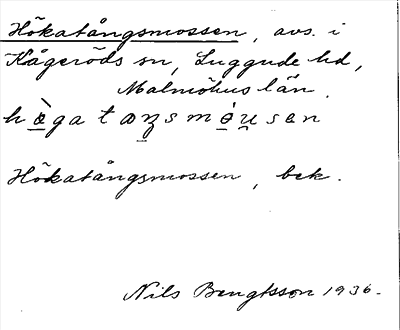 Hökatångsmossen, avs. i
Kågeröds sn, Luggude hd,
Malmöhus län.
Hökatångsmossen, bek.
Nils Bengtsson 1936.